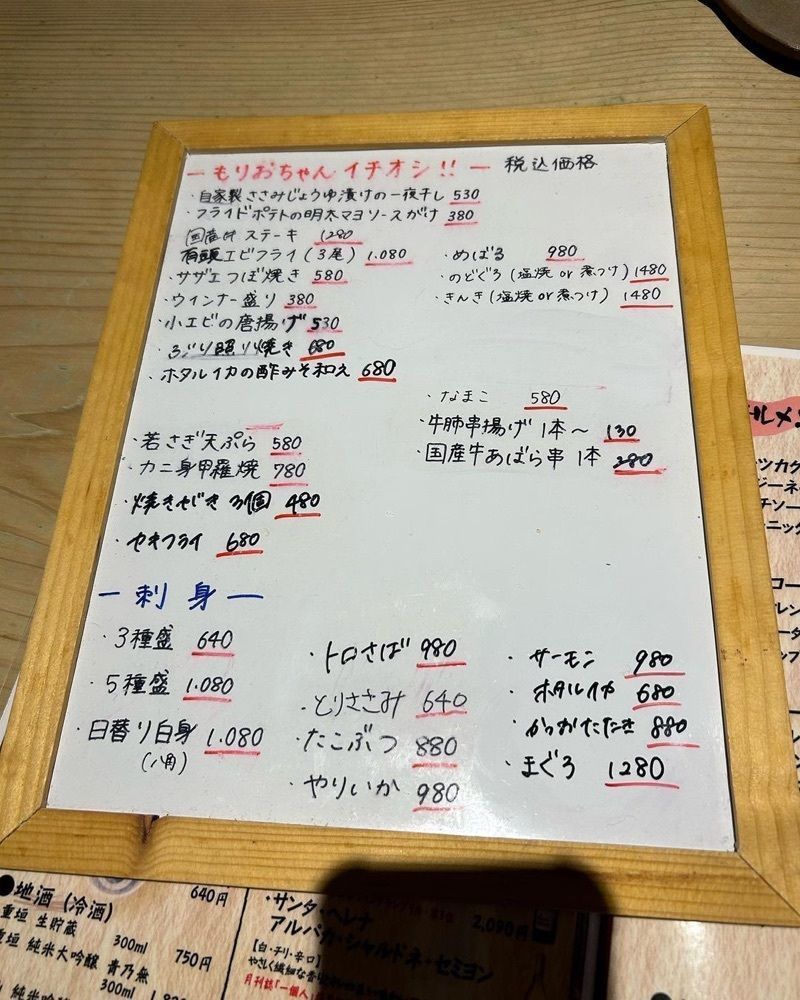 ーもりおちゃんイチオシ!!ー 税込価格
・自家製ささみじょうゆ漬けの一夜干し 530
・フライドポテトの明太マヨソースがけ 380
国産牛ステーキ 1280
有頭エビフライ(3尾) 1.080
・サザエつぼ焼き 580
・ウインナー盛り 380
・小エビの唐揚げ 530
・ぶり照り焼き 680
・ホタルイカの酢みそ和え 680
・めばる 980
・のどぐろ(塩焼 or 煮つけ) 1480
・きんき(塩焼 or 煮つけ) 1480
・若さぎ天ぷら 580
・カニ身甲羅焼 780
・焼きせがき 3個 480
・セキフライ 680
・なまこ 580
・牛肺串揚げ 1本〜 130
・国産牛あばら串 1本 280
ー刺身ー
・3種盛 640
・5種盛 1.080
・日替り白身 1.080
(八角)
・トロさば 980
・とりささみ 640
・たこぶつ 880
・やりいか 980
・サーモン 980
・ホタルイカ 680
・かつおたたき 880
・まぐろ 1280
●地酒(冷酒) 640円
重垣 生貯蔵
300ml
純米大吟醸 青乃無 750円
300ml
純米吟醸
・サンタ・ヘレナ
アルパカ・シャルドネ・セミヨン 2,090円
【白・チリ・辛口】
月刊誌「一個人」